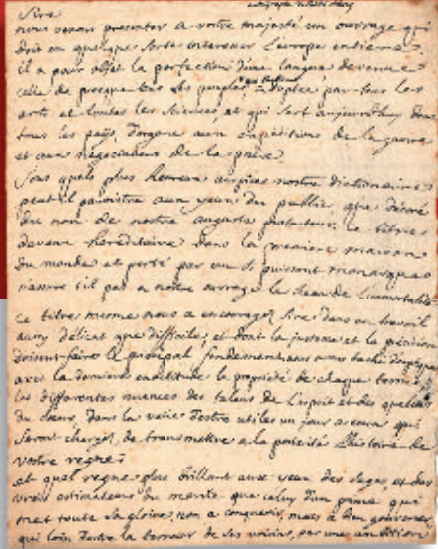 autographe de l'abbé
Sire
nous venons presenter a votre majesté un ouvrage qui
doit en quelque sorte interesser l'europe entiere.
il a pour objet la perfection d'une langue devenue
celle de presque tous les peuples, adoptée par tous les
arts et toutes les sciences, et qui sert aujourdhuy dans
tous les païs, d'organe aux expeditions de la guerre
et aux negociations de la paix.
Sous quels plus heureux auspices nostre dictionnaire
peut il paroistre aux yeux du public que décoré
du nom de nostre auguste protecteur. ce titre
devenu hereditaire dans la premiere maison
du monde et porté par un si puissant monarque
n'assure t'il pas a nostre ouvrage le sceau de l'immortalité
ce titre mesme nous a encouragez, sire, dans un travail
aussy délicat que difficile, et dont la justesse et la précision
doivent faire le principal fondement nous avons taché
avec la derniere exactitude la propriété de chaque terme,
les differentes nuances des talens de l'esprit et des qualitez
du coeur, dans la veüe d'estre utiles un jour a ceux qui
seront chargez de transmettre a la posterité l'histoire de
vostre regne.
et quel regne plus brillant aux yeux des sages, et des
vrais estimateurs du merite que celuy d'un prince qui
met toute sa gloire, non a conquerir, mais a bien gouverner,
qui loin d'estre la terreur de ses voisins, par une ambition